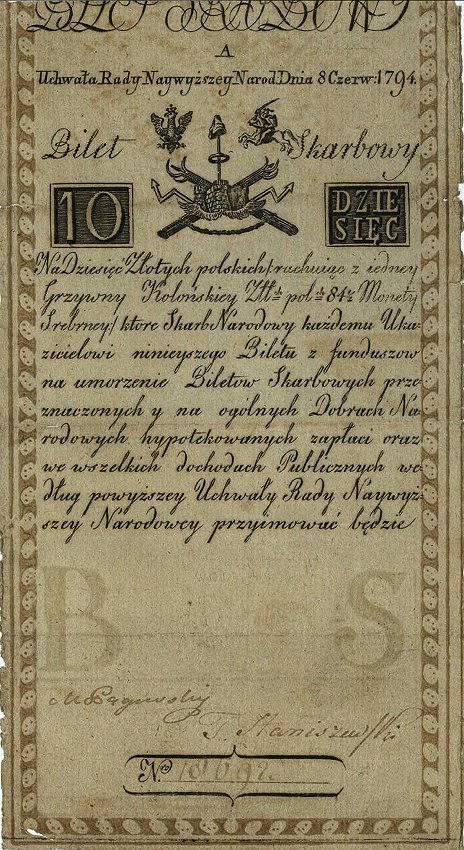 A
Uchwała Rady Naywyższey Narod. Dnia 8 Czerw: 1794.
Bilet Skarbowy
10 DZIE
SIĘĆ
Na Dziesięć Złotych polskich / rachuiąc z iedney
Grzywny Kolońskiey Złł: pol: 84½ Monety
Srebrney / ktore Skarb Narodowy każdemu Uka-
zicielowi ninieyszego Biletu z funduszow
na umorzenie Biletow Skarbowych prze-
znaczonych y na ogólnych Dobrach Na-
rodowych hypotekowanych zapłaci oraz
we wszelkich dochodach Publicznych we-
dług powyższey Uchwały Rady Naywyż-
szey Narodowey przyimować będzie
B S
T. Staniszewski
Nro